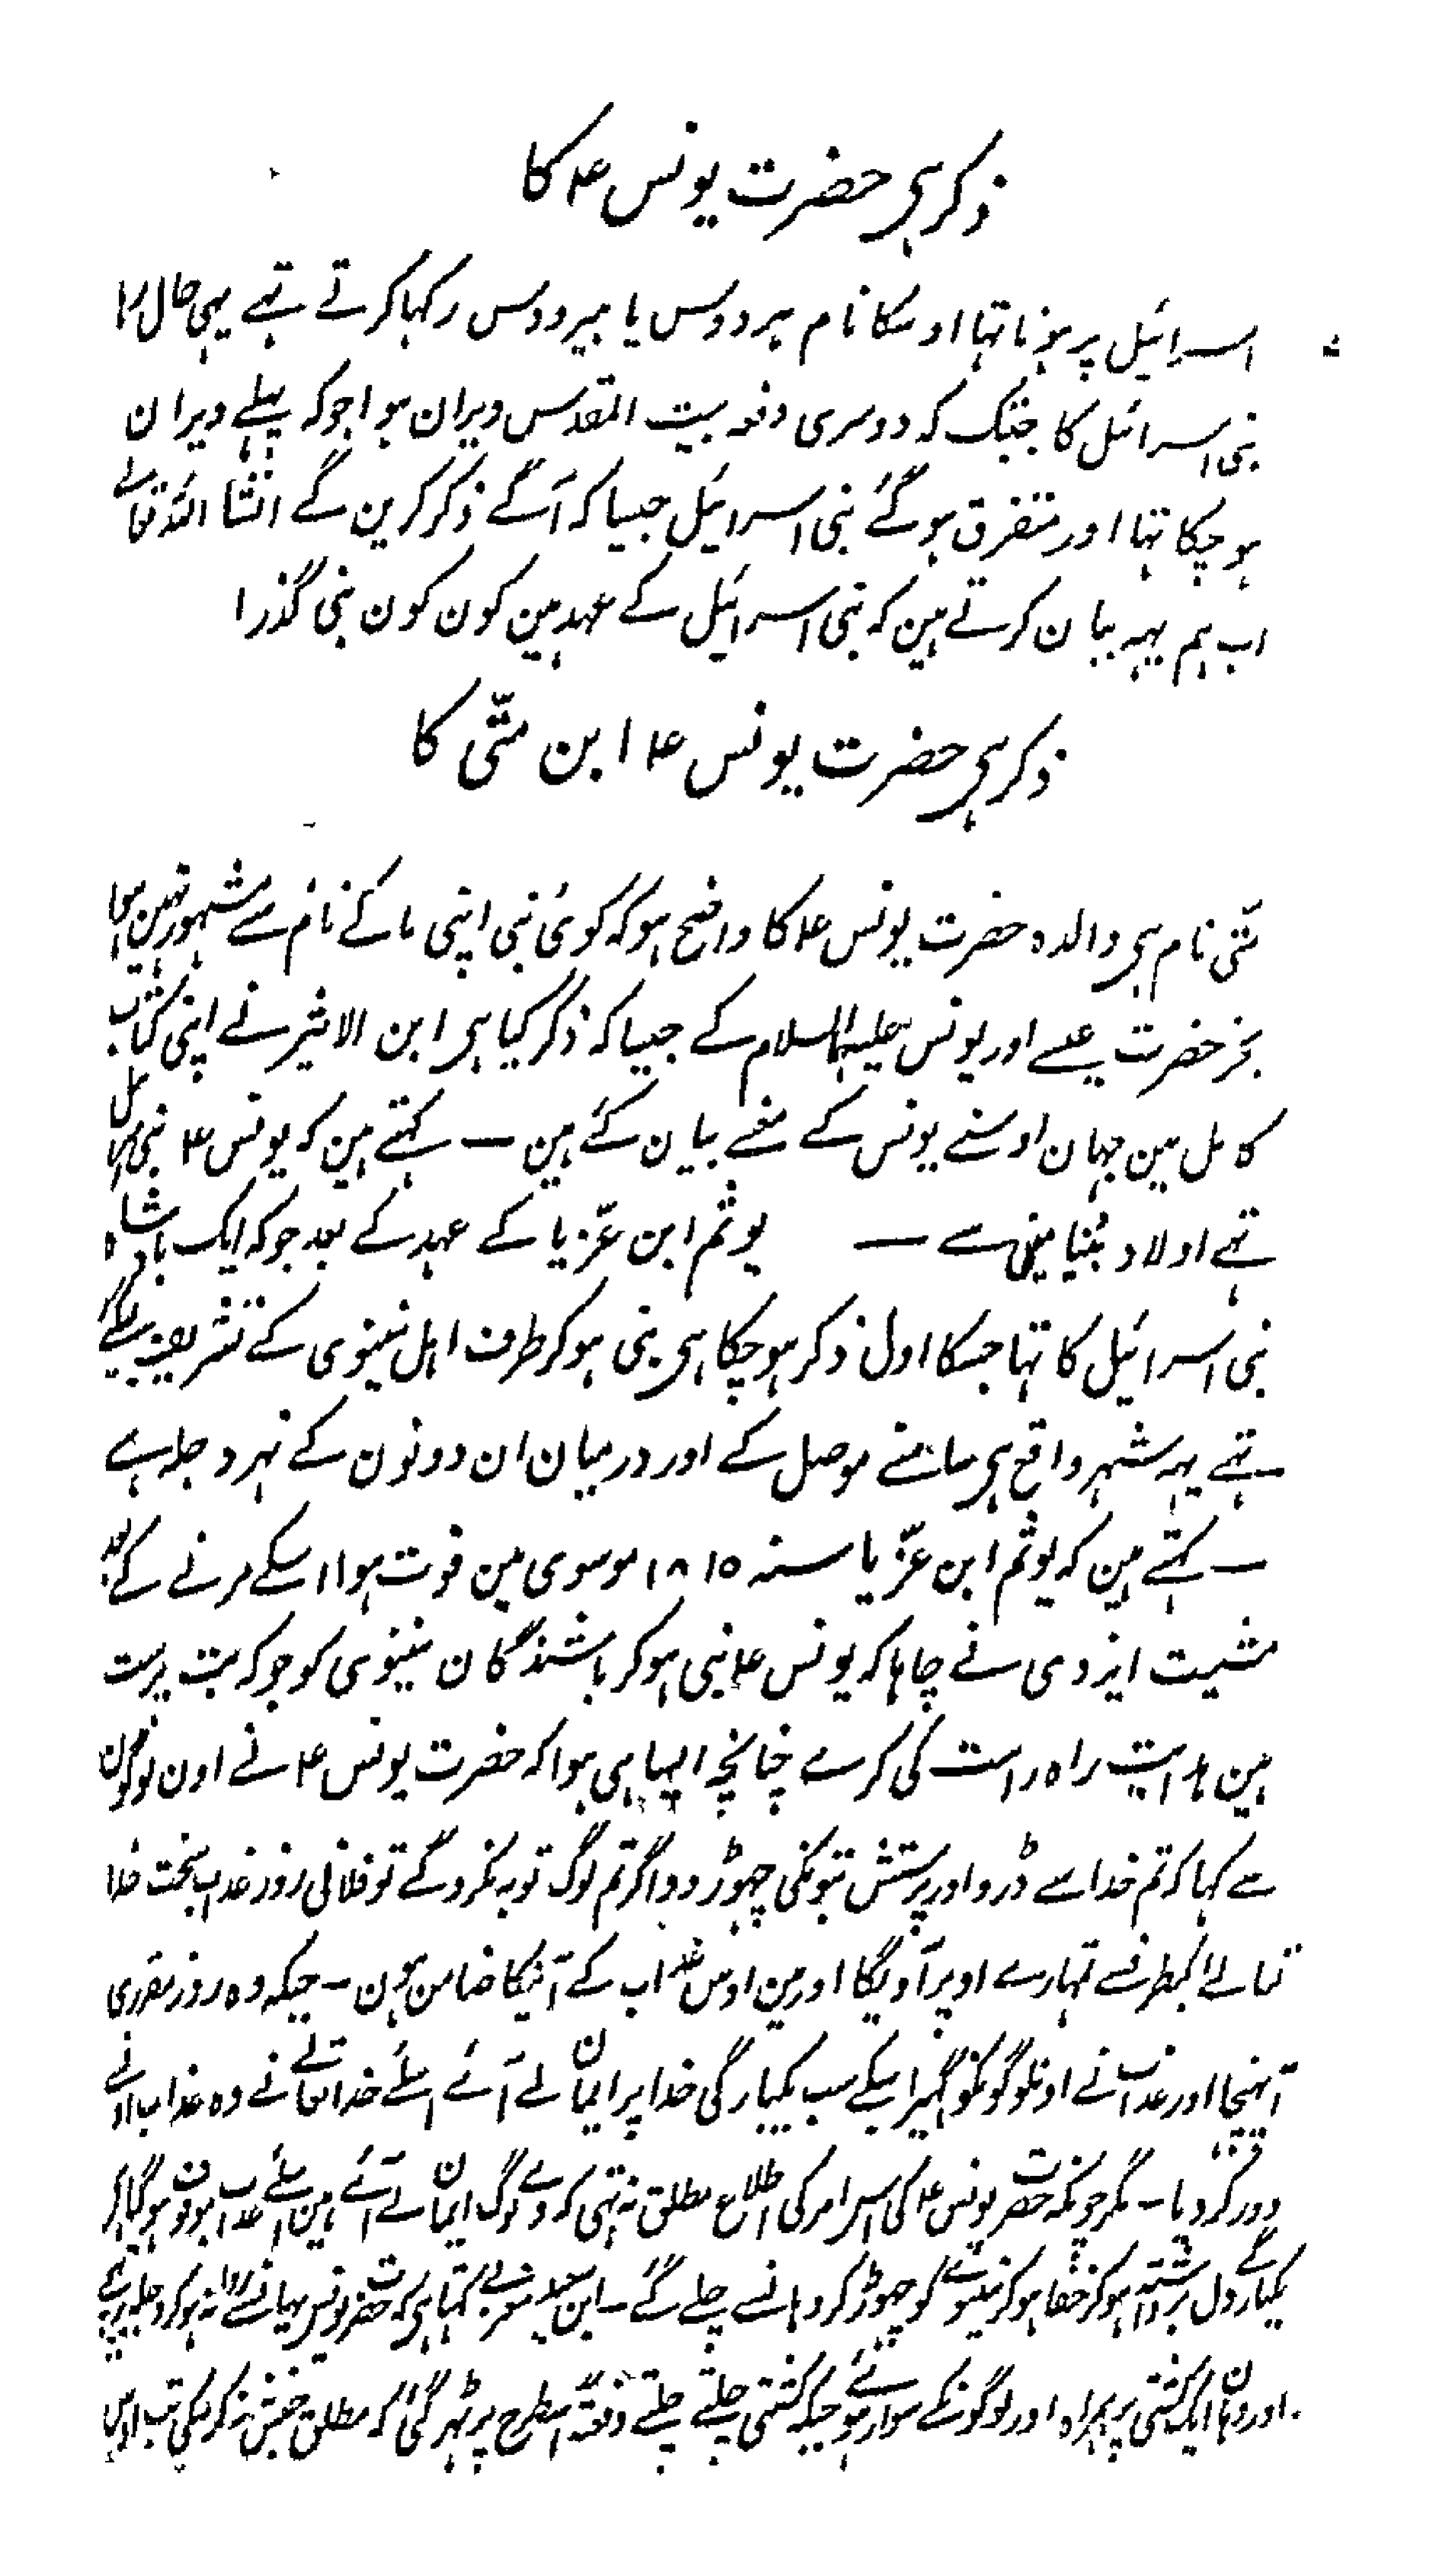 ذکر ہی حضرت یونس ۴ کا
اسرائیل پر ہوتا تہا اوسکا نام ہردوس یا ہیرودس رکہا کرتے تہے یہی حال رہا
بنی اسرائیل کا جبتک کہ دوسری دفعہ بیت المقدس ویران ہوا جو کہ پہلے ویران
ہو چکا تہا اور متفرق ہو گئے بنی اسرائیل جیسا کہ آگے ذکر کرین گے انشا اللہ تعالے
اب ہم یہہ بیان کرتے ہین کہ بنی اسرائیل کے عہد مین کون کون نبی گذرا
ذکر ہی حضرت یونس ۴ ابن متّی کا
متّی نام ہی والدہ حضرت یونس ۴ کا واضح ہو کہ کوئی نبی اپنی ما کے نام سے مشہور نہین ہوا
بجز حضرت عیسے اور یونس علیہما السلام کے جیسا کہ ذکر کیا ہی ابن الاثیر نے اپنی کتاب
کامل مین جہان اوسنے یونس کے قصے بیان کئے ہین — کہتے ہین کہ یونس ۴ نبی اسرائیل
تہے اولاد بنیامین سے — یوثم ابن عزّیا کے عہد کے بعد جو کہ ایک بادشاہ
بنی اسرائیل کا تہا جسکا اول ذکر ہو چکا ہی نبی ہو کر طرف اہل نینوی کے تشریف لیگئے
تہے یہہ شہر واقع ہی سامنے موصل کے اور درمیان ان دونون کے نہر دجلہ ہے
— کہتے ہین کہ یوثم ابن عزّیا سنہ ۱۸۱۵ موسوی مین فوت ہوا اسکے مرنے کے بعد
مشیت ایزدی نے چاہا کہ یونس ۴ نبی ہو کر باشندگان نینوی کو جو کہ بت پرست
ہین ہدایت راہ راست کی کرے چنانچہ ایسا ہی ہوا کہ حضرت یونس ۴ نے اون لوگون
سے کہا کہ تم خدا سے ڈرو اور پرستش بتونکی چہوڑ دو اگر تم لوگ توبہ نکروگے تو فلانی روز عذاب سخت خدا
تعالے کیطرفسے تمہارے اوپر آویگا اور مین اوس عذاب کے آنیکا ضامن ہون — جبکہ وہ روز مقرری
آپہنچا اور عذاب نے اونلوگونکو گہیرا سبکے سب یکبارگی خدا پر ایمان لے آئے اسلئے خدا تعالے نے وہ عذاب اونسے
دور کر دیا — مگر چونکہ حضرت یونس ۴ کی اس امر کی اطلاع مطلق نہ تہی کہ وے لوگ ایمان لے آئے ہین اسلئے عذاب موقوف ہو گیا
یکبارگے دل برداشتہ ہو کر خفا ہو کر نینوے کو چہوڑ کر وہانسے چلے گئے — ابن سعید مغربی کہتا ہی کہ حضرت یونس یہانسے روانہ ہو کر دجلہ پر
اور وہان ایک کشتی پر ہمراہ اور لوگونکے سوار ہوئے جبکہ کشتی چلتے چلتے دفعتہً اسطرح پر ٹہر گئی کہ مطلق جنبش نہ کر سکی تب اوس